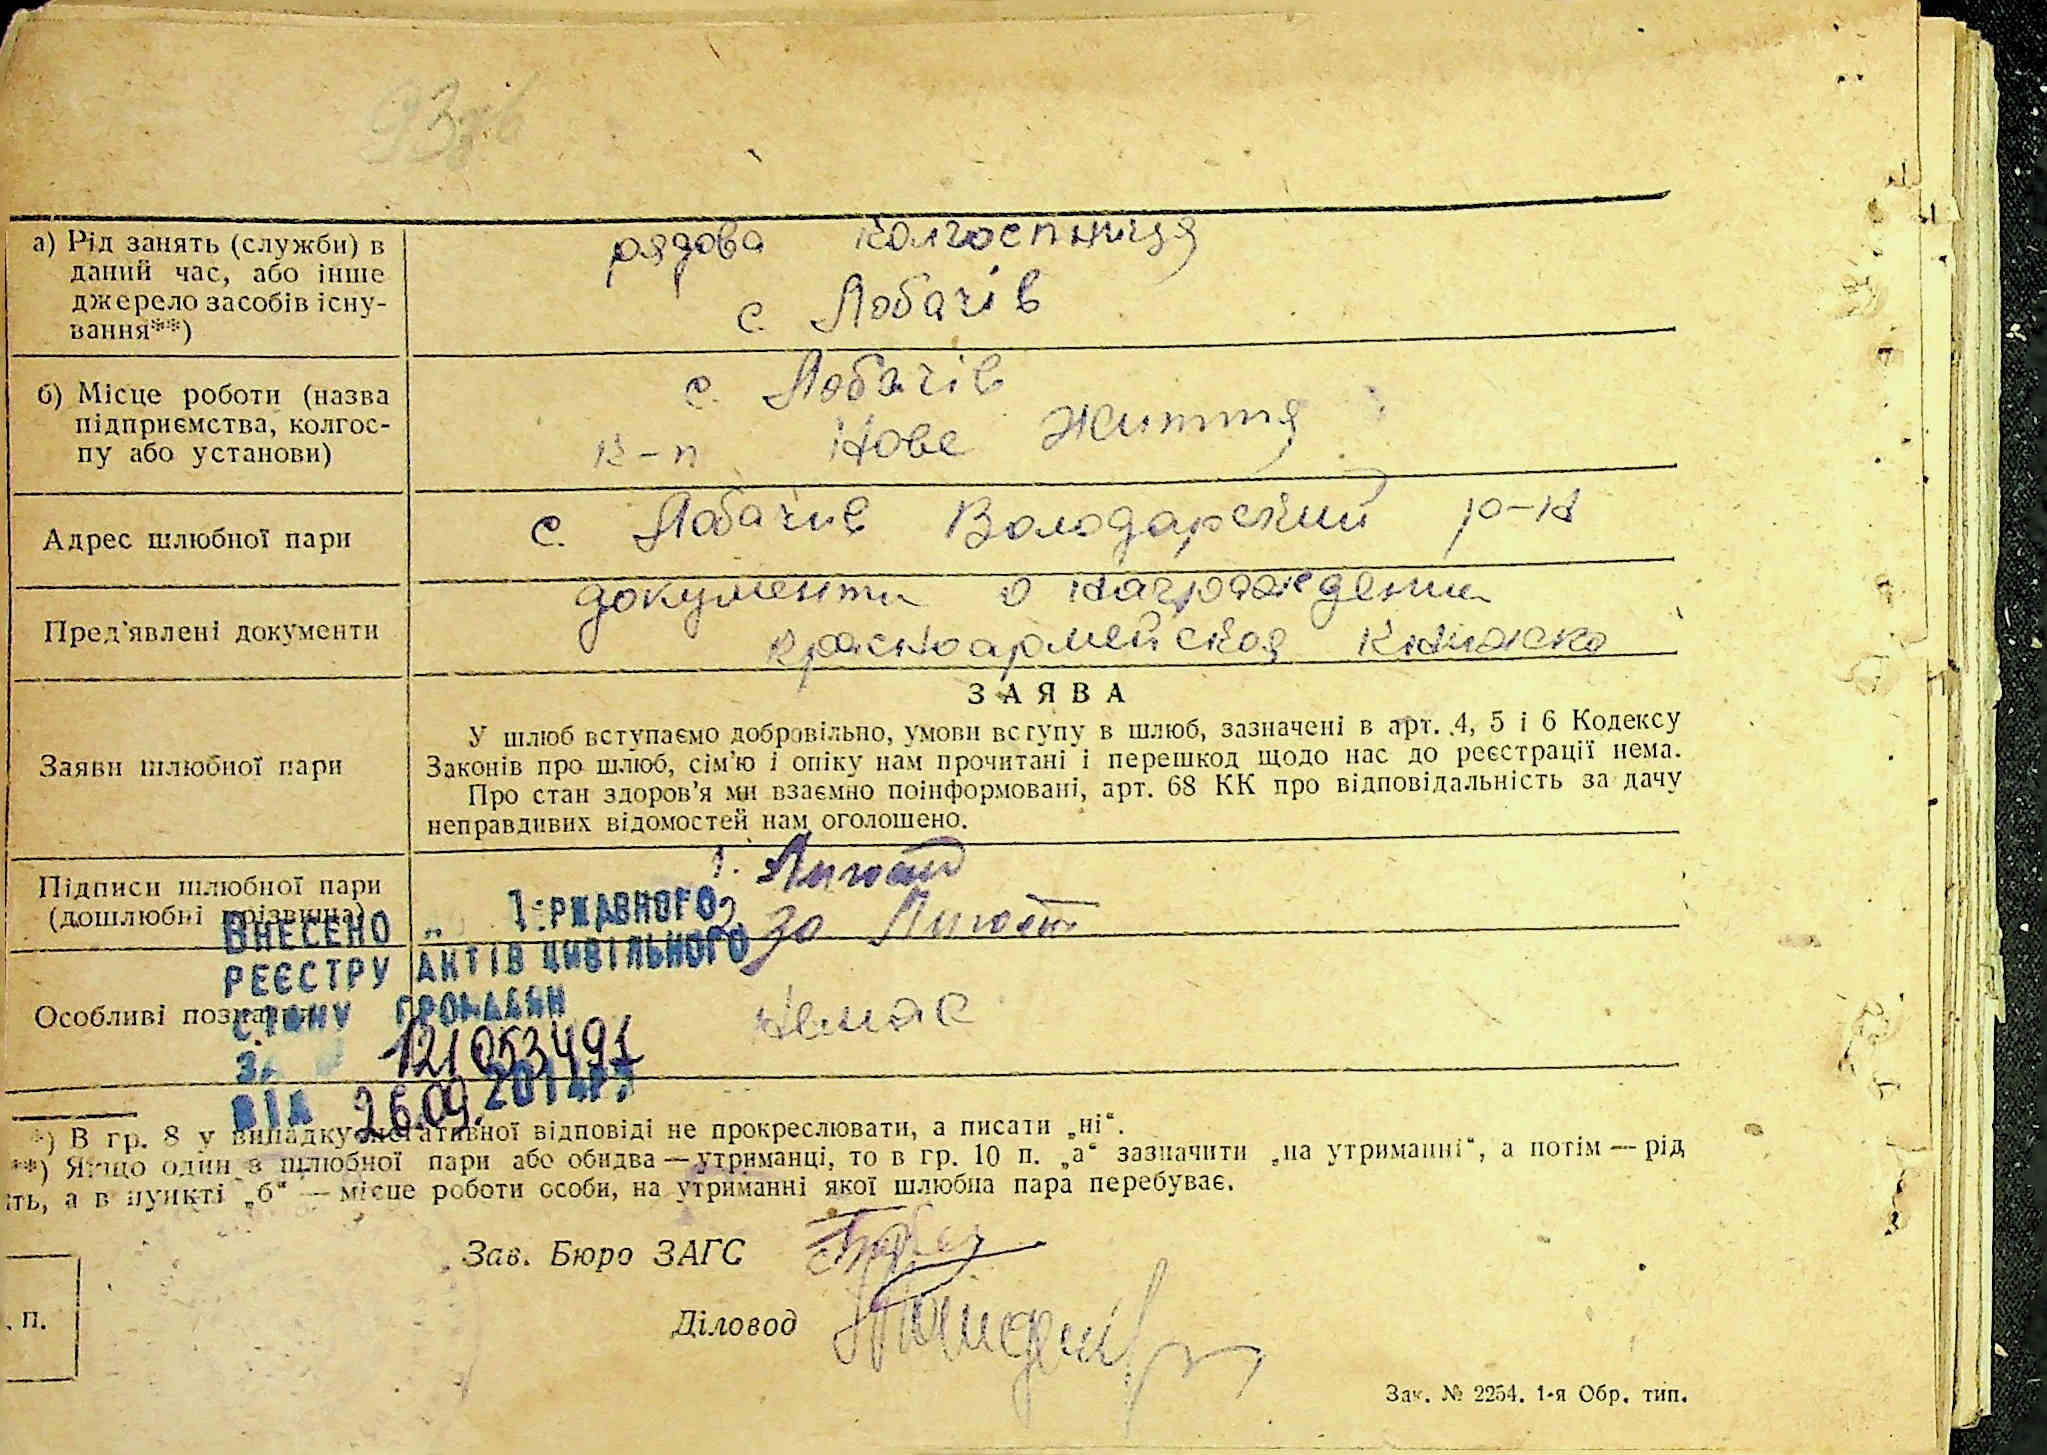 а) Рід занять (служби) в
даний час, або інше
джерело засобів існу-
вання**)
рядова колгоспниця
с. Лобачів
б) Місце роботи (назва
підприємства, колгос-
пу або установи)
с. Лобачів
к-п Нове Життя
Адрес шлюбної пари
с. Лобачив Володарский р-н
Пред'явлені документи
документи о награждении
красноармейская книжка
Заяви шлюбної пари
ЗАЯВА
У шлюб вступаємо добровільно, умови вступу в шлюб, зазначені в арт. 4, 5 і 6 Кодексу
Законів про шлюб, сім'ю і опіку нам прочитані і перешкод щодо нас до реєстрації нема.
Про стан здоров'я ми взаємно поінформовані, арт. 68 КК про відповідальність за дачу
неправдивих відомостей нам оголошено.
Підписи шлюбної пари
(дошлюбні прізвища)
1.
2. за
Особливі познання
немає
ВНЕСЕНО ДО ДЕРЖАВНОГО
РЕЄСТРУ АКТІВ ЦИВІЛЬНОГО
СТАНУ ГРОМАДЯН
ЗА № 121053491
ВІД 26.09.2014Р.
*) В гр. 8 у випадку негативної відповіді не прокреслювати, а писати „ні“.
**) Якщо один з шлюбної пари або обидва — утриманці, то в гр. 10 п. „а“ зазначити „на утриманні“, а потім — рід
ть, а в пункті „б“ — місце роботи особи, на утриманні якої шлюбна пара перебуває.
Зав. Бюро ЗАГС
Діловод
. п.
Зак. № 2254. 1-я Обр. тип.